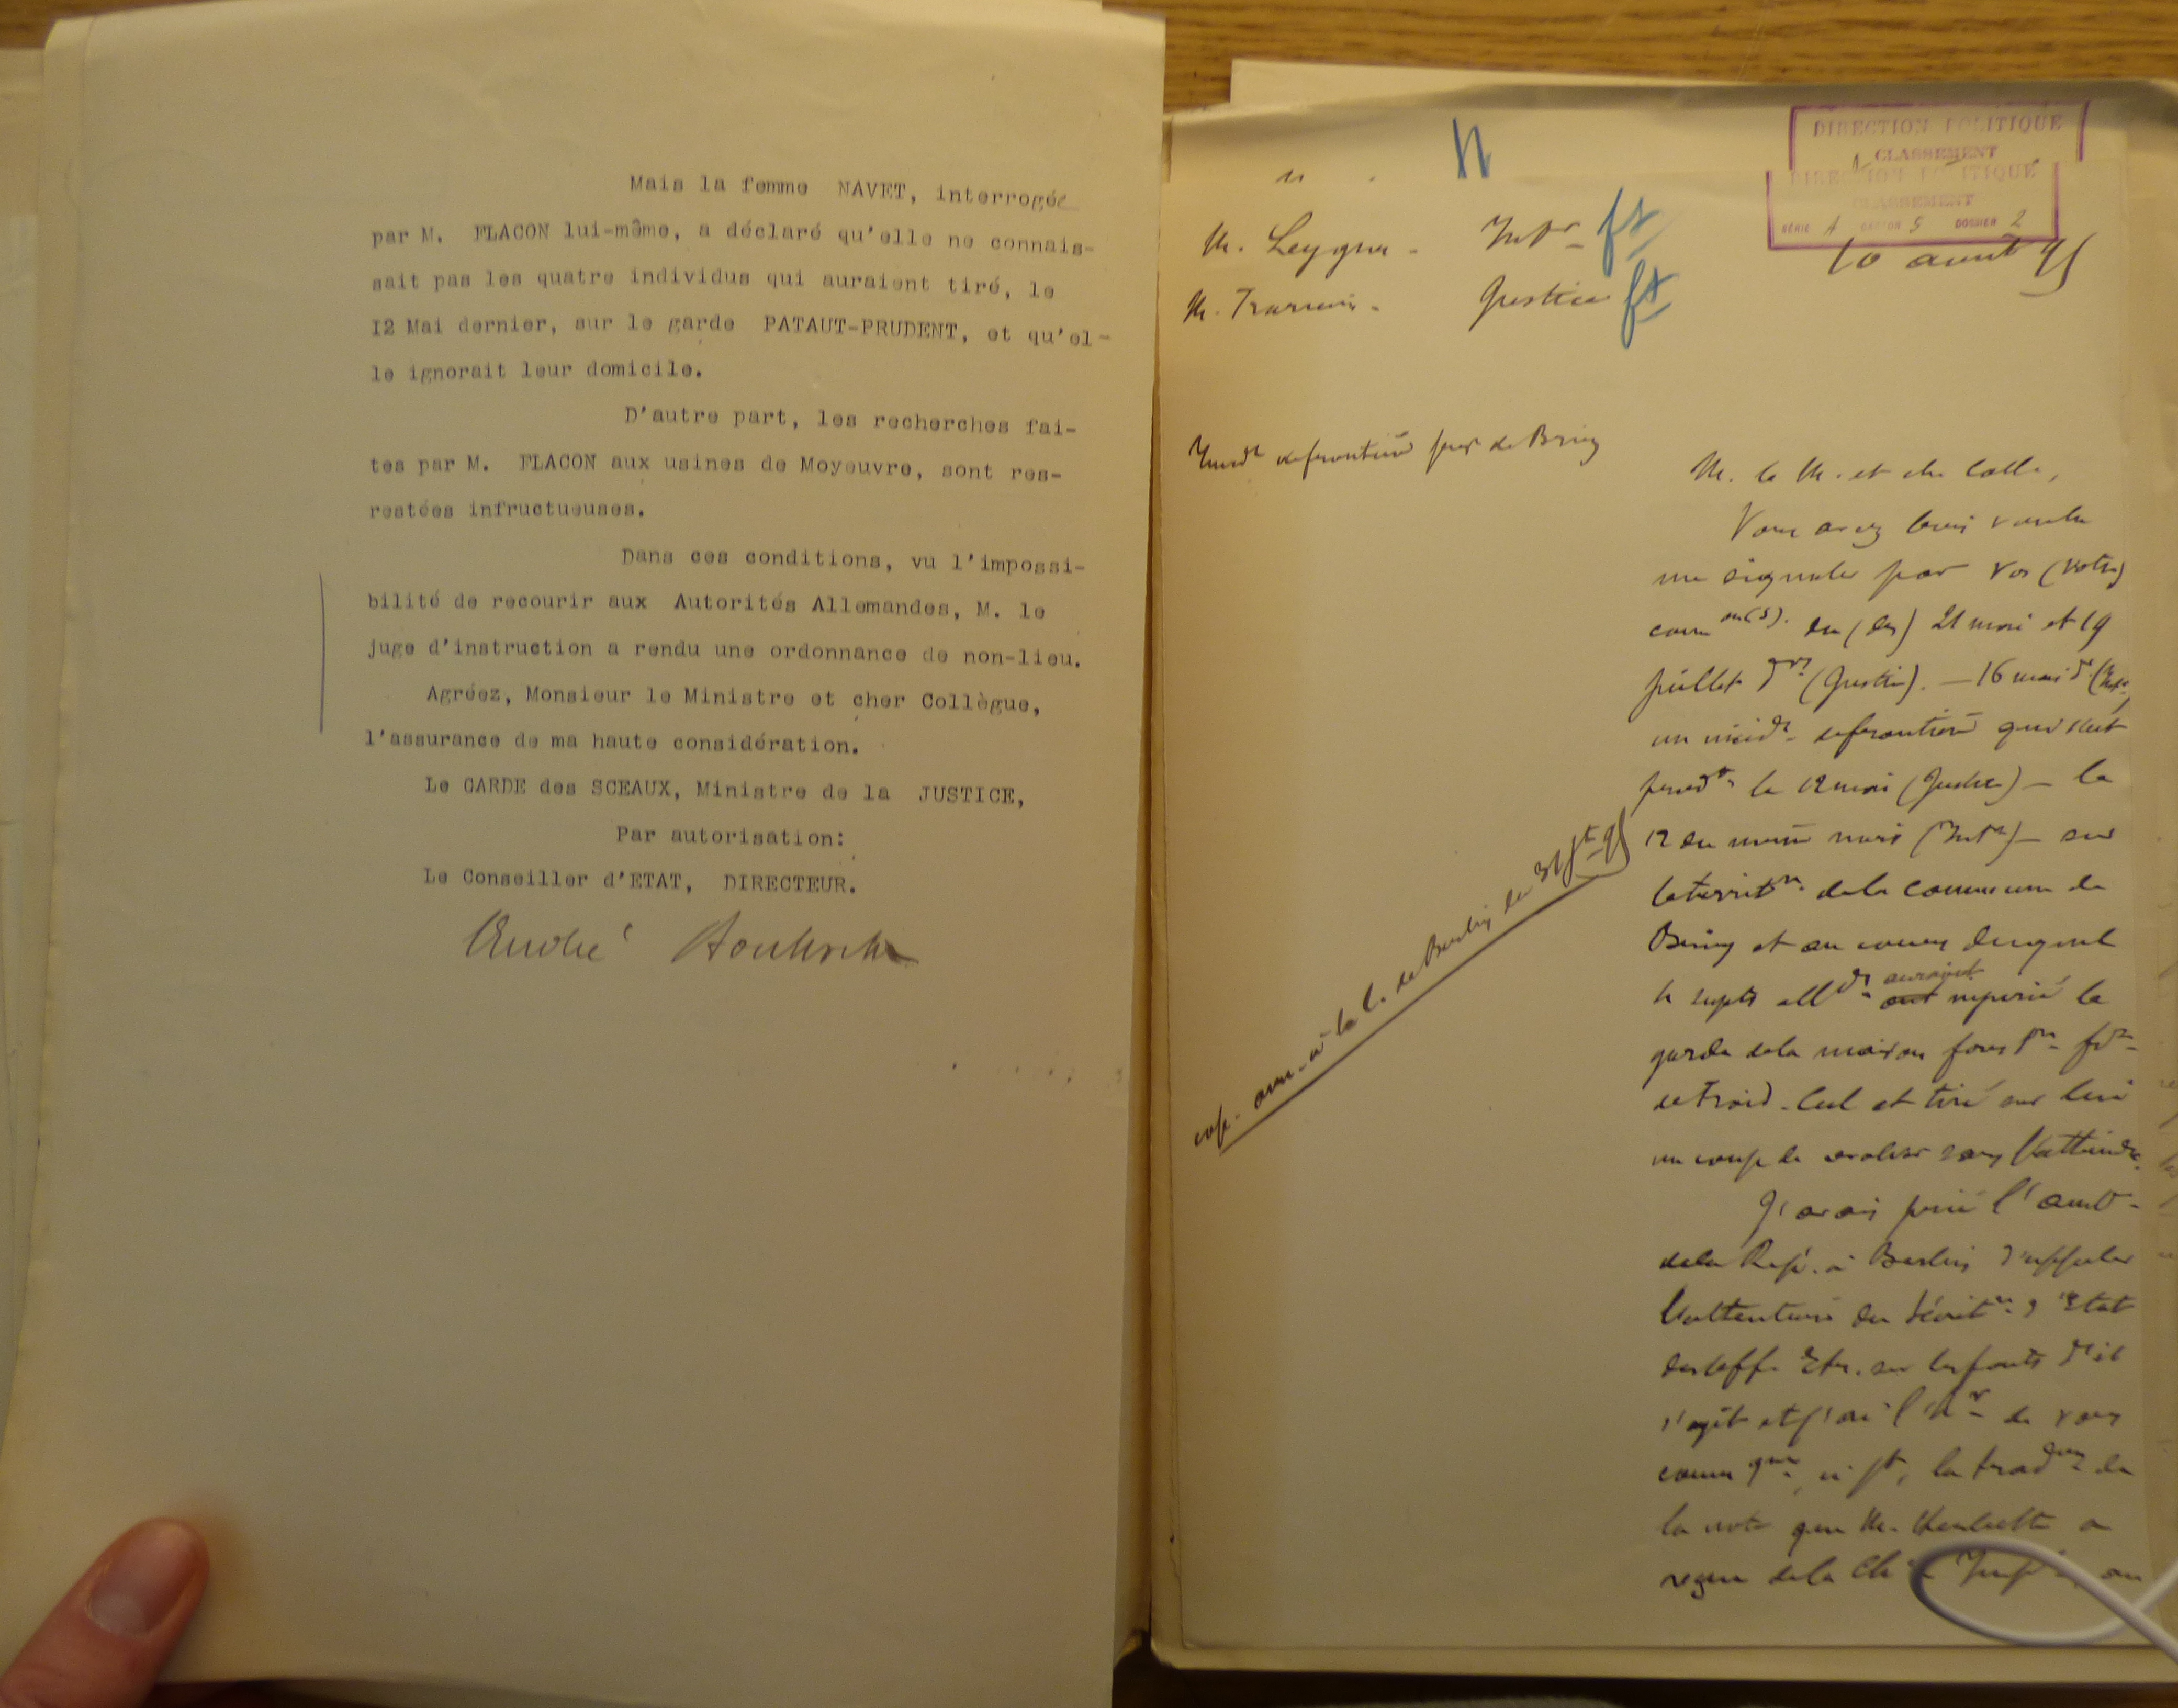 Mais la femme NAVET, interrogée
par M. FLACON lui-même, a déclaré qu'elle ne connais-
sait pas les quatre individus qui auraient tiré, le
I2 Mai dernier, sur le garde PATAUT-PRUDENT, et qu'el-
le ignorait leur domicile.
D'autre part, les recherches fai-
tes par M. FLACON aux usines de Moyeuvre, sont res-
restées infructueuses.
Dans ces conditions, vu l'impossi-
bilité de recourir aux Autorités Allemandes, M. le
juge d'instruction a rendu une ordonnance de non-lieu.
Agréez, Monsieur le Ministre et cher Collègue,
l'assurance de ma haute considération.
Le GARDE des SCEAUX, Ministre de la JUSTICE,
Par autorisation:
Le Conseiller d'ETAT, DIRECTEUR.
André
DIRECTION POLITIQUE
CLASSEMENT
DIRECTION POLITIQUE
CLASSEMENT
SÉRIE A CARTON 5 DOSSIER 2
10 aout 95
M. Leygues - Intr
M. Trarieux - Justice
Incidt de frontière près de Briey
M. le M. et cher Colle,
Vous avez bien voulu
me signaler par vos (votre)
comm on(s). du (des) 21 mai et 19
juillet drs (Justice). - 16 mai dr (Intr)
un incidt de frontière qui s'est
le 12 mai (Justice) - le
12 du même mois (Intr) - sur
le territre de la commune de
Briey et au cours duquel
4 sujets allds auraient ont injurié le
garde de la maison forestre
de Froid-Cul et tiré sur lui
un coup de revolver sans l'atteindre.
J'avais prié l'amb-
de la Rép. à Berlin d'appeler
l'attention du Secrétre d'Etat
des aff. Etr. sur les faits dt il
s'agit et j'ai l'hr de vous
commquer, ci jt, la tradon de
la note que M. Herbette a
reçue de la Chie Imple, au
cop. ann. à la l. de Berlin du 31 jt 95